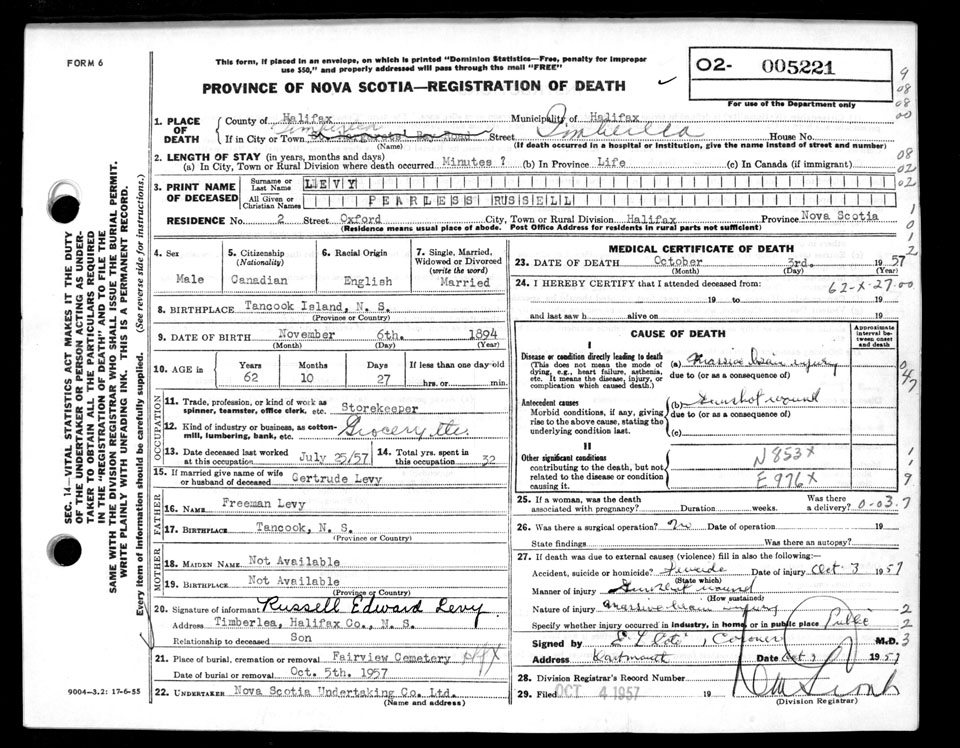 FORM 6
This form, if placed in an envelope, on which is printed "Dominion Statistics—Free, penalty for improper
use $50," and properly addressed will pass through the mail "FREE"
PROVINCE OF NOVA SCOTIA—REGISTRATION OF DEATH
O2- 005221
For use of the Department only
1. PLACE OF DEATH
County of Halifax Municipality of Halifax
Timberlea
If in City or Town St. Margarets Bay Road Street Timberlea House No.
(Name) (If death occurred in a hospital or institution, give the name instead of street and number)
2. LENGTH OF STAY (in years, months and days)
(a) In City, Town or Rural Division where death occurred Minutes ? (b) In Province Life (c) In Canada (if immigrant)
3. PRINT NAME OF DECEASED
Surname or Last Name LEVY
All Given or Christian Names PEARLESS RUSSELL
RESIDENCE No. 2 Street Oxford City, Town or Rural Division Halifax Province Nova Scotia
(Residence means usual place of abode. Post Office Address for residents in rural parts not sufficient)
4. Sex Male
5. Citizenship (Nationality) Canadian
6. Racial Origin English
7. Single, Married, Widowed or Divorced (write the word) Married
8. BIRTHPLACE Tancook Island, N. S.
(Province or Country)
9. DATE OF BIRTH November 6th. 1894
(Month) (Day) (Year)
10. AGE in Years 62 Months 10 Days 27 If less than one day old hrs. or min.
OCCUPATION
11. Trade, profession, or kind of work as
spinner, teamster, office clerk, etc. Storekeeper
12. Kind of industry or business, as cotton-
mill, lumbering, bank, etc. Grocery etc.
13. Date deceased last worked at this occupation July 25/57
14. Total yrs. spent in this occupation 32
15. If married give name of wife
or husband of deceased Gertrude Levy
FATHER
16. NAME Freeman Levy
17. BIRTHPLACE Tancook, N. S.
(Province or Country)
MOTHER
18. MAIDEN NAME Not Available
19. BIRTHPLACE Not Available
(Province or Country)
20. Signature of informant Russell Edward Levy
Address Timberlea, Halifax Co., N. S.
Relationship to deceased Son
21. Place of burial, cremation or removal Fairview Cemetery
Date of burial or removal Oct. 5th. 1957
22. UNDERTAKER Nova Scotia Undertaking Co. Ltd.
(Name and address)
MEDICAL CERTIFICATE OF DEATH
23. DATE OF DEATH October 3rd. 1957
(Month) (Day) (Year)
24. I HEREBY CERTIFY that I attended deceased from: 62-X-27-00
19 to 19
and last saw h alive on 19
CAUSE OF DEATH
Approximate interval between onset and death
I
Disease or condition directly leading to death
(This does not mean the mode of dying, e.g., heart failure, asthenia, etc. It means the disease, injury, or complication which caused death.)
(a) Massive brain injury
due to (or as a consequence of)
Antecedent causes
Morbid conditions, if any, giving rise to the above cause, stating the underlying condition last.
(b) Gunshot wound
due to (or as a consequence of)
(c)
II
Other significant conditions
contributing to the death, but not related to the disease or condition causing it.
N853X
E976X
25. If a woman, was the death associated with pregnancy? Duration weeks. Was there a delivery? 0-03.7
26. Was there a surgical operation? No Date of operation 19
State findings Was there an autopsy?
27. If death was due to external causes (violence) fill in also the following:
Accident, suicide or homicide? Suicide Date of injury Oct 3 1957
(State which)
Manner of injury Gunshot wound
(How sustained)
Nature of injury Massive brain injury
Specify whether injury occurred in industry, in home or in public place Public
Signed by Coroner M.D.
Address Dartmouth Date Oct 3 1957
28. Division Registrar's Record Number
29. Filed OCT 4 1957 19
(Division Registrar)
SEC. 14—VITAL STATISTICS ACT MAKES IT THE DUTY
OF THE UNDERTAKER OR PERSON ACTING AS UNDER-
TAKER TO OBTAIN ALL THE PARTICULARS REQUIRED
IN THE "REGISTRATION OF DEATH" AND TO FILE THE
SAME WITH THE DIVISION REGISTRAR WHO SHALL ISSUE THE BURIAL PERMIT.
WRITE PLAINLY WITH UNFADING INK. THIS IS A PERMANENT RECORD.
Every item of information should be carefully supplied. (See reverse side for instructions.)
9004-3.2: 17-6-55